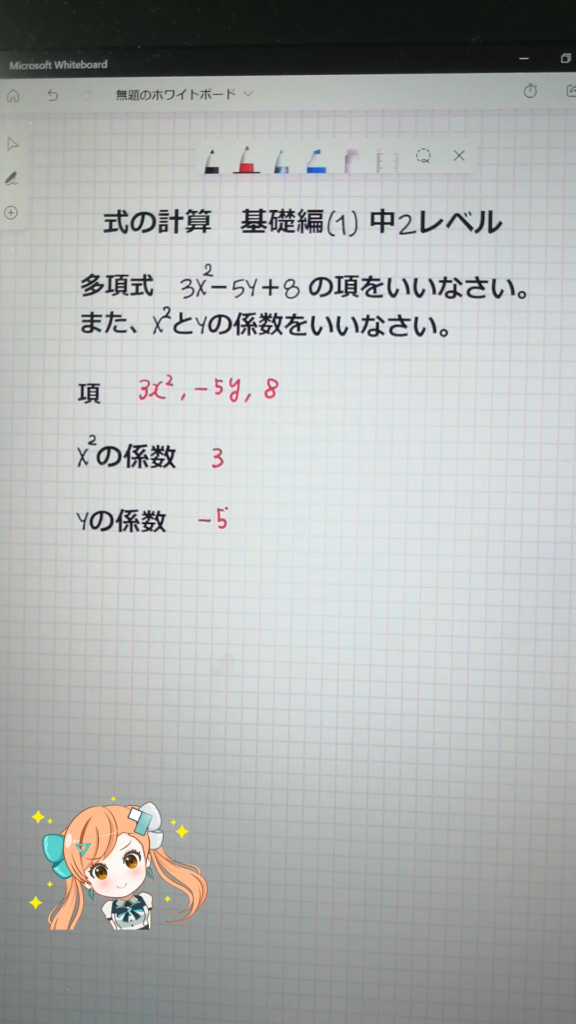 Microsoft Whiteboard
無題のホワイトボード
式の計算 基礎編(1) 中2レベル
多項式 3x²-5y+8 の項をいいなさい。
また、x²とyの係数をいいなさい。
項 3x², -5y, 8
x²の係数 3
yの係数 -5